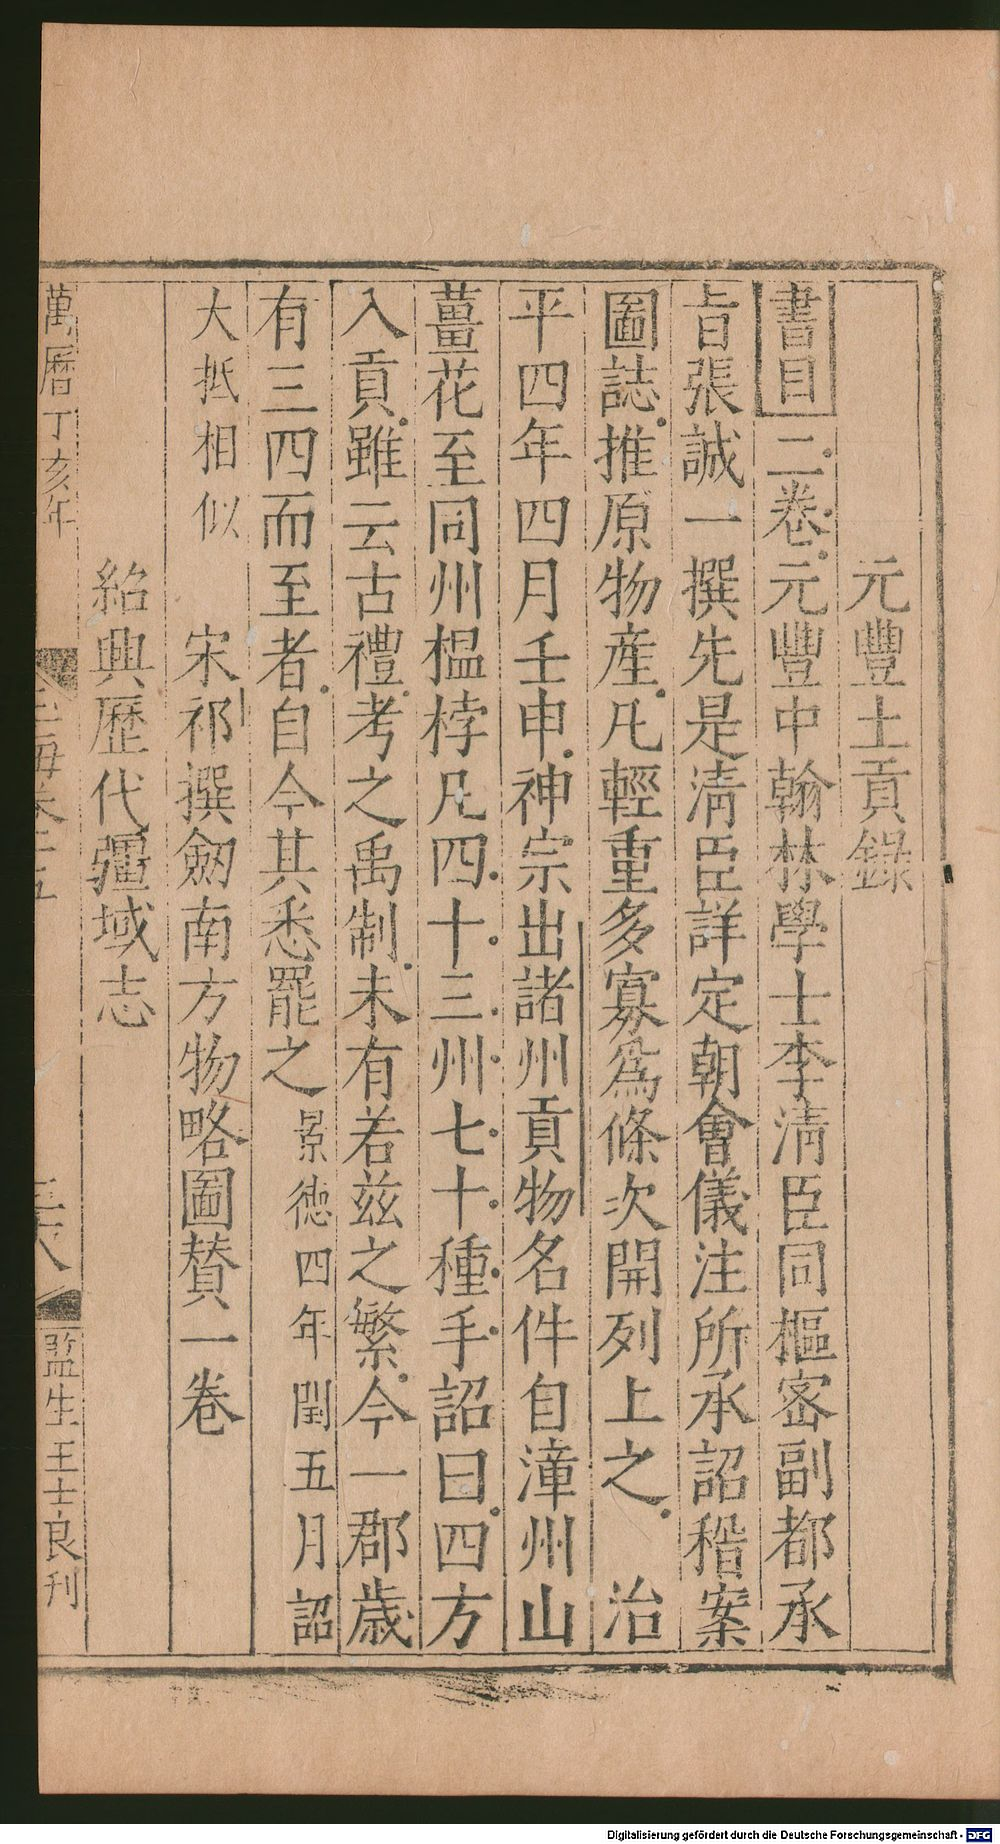 元豐土貢錄
書目二卷元豐中翰林學士李淸臣同樞宻副都承
旨張誠一撰先是淸臣詳定朝會儀注所承詔稽案
圖誌推原物産凡輕重多寡爲條次開列上之　治
平四年四月壬申神宗出諸州貢物名件自漳州山
薑花至同州榅桲凡四十三州七十種手詔曰四方
入貢雖云古禮考之禹制未有若兹之繁今一郡歲
有三四而至者自今其悉罷之景德四年閏五月詔
大抵相似　宋祁撰劒南方物略圖贊一卷
紹興歷代疆域志
萬曆丁亥年
監生王士良刊
Digitalisierung gefördert durch die Deutsche Forschungsgemeinschaft - DFG